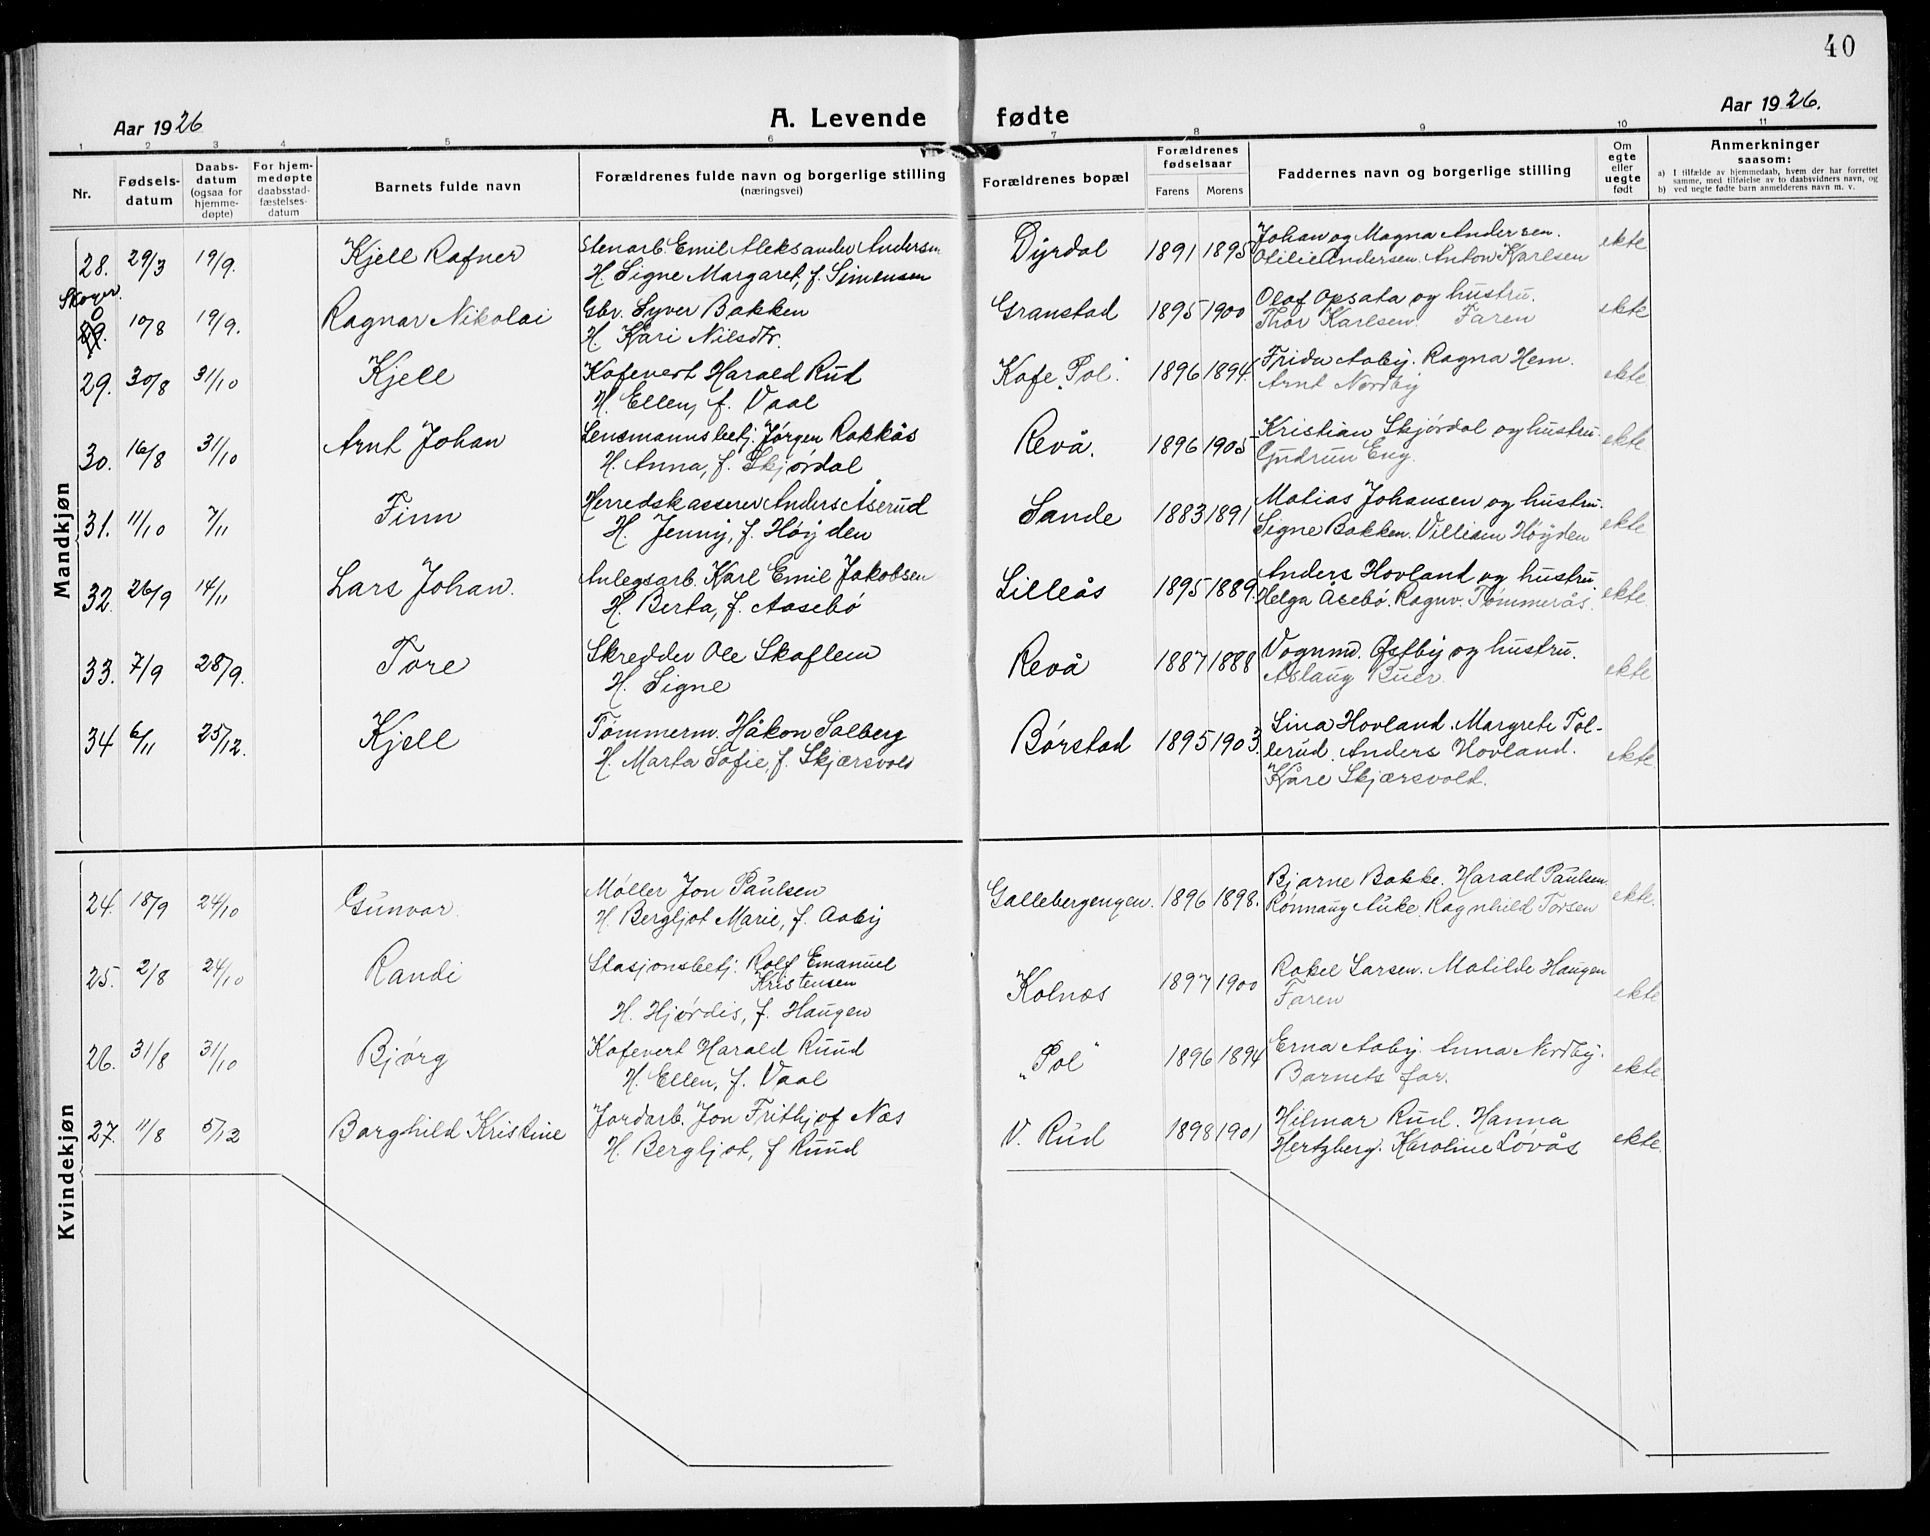 40
Aar 1926
A. Levende fødte
Aar 1926.
1 2 3 4 5 6 7 8 9 10 11
Nr.
Fødsels-
datum
Daabs-
datum
(ogsaa for
hjemme-
døpte)
For hjem-
medøpte
daabsstad-
fæstelses-
datum
Barnets fulde navn
Forældrenes fulde navn og borgerlige stilling
(næringsvei)
Forældrenes bopæl
Forældrenes
fødselsaar
Farens Morens
Faddernes navn og borgerlige stilling
Om
egte
eller
uegte
født
Anmerkninger
saasom:
a) I tilfælde av hjemmedaab, hvem der har forrettet
samme, med tilføielse av to daabsvidners navn, og
b) ved uegte fødte barn anmelderens navn m. v.
Mandkjøn
28. 29/3 19/9. Kjell Rafner
Stenarb. Emil Aleksander Andersen
H. Signe Margaret, f. Simensen
Dyrdal 1891 1895
Johan og Magna Andersen.
Otilie Andersen. Anton Karlsen
ekte
Skoger.
0
29. 10/8 19/9. Ragnar Nikolai
Gbr. Syver Bakken
H. Kari Nilsdtr.
Granstad 1895 1900
Olaf Opsata og hustru.
Thor Karlsen. Faren
ekte
29. 30/8 31/10 Kjell
Kafevert Harald Rud
H. Ellen, f. Vaal
Kafe „Pol". 1896 1894.
Frida Aaby. Ragna Hem.
Arnt Nordby
ekte
30. 16/8 31/10 Arnt Johan
Lensmannsbetj. Jørgen Rakkås
H. Anna, f. Skjørdal
Revå. 1896 1905
Kristian Skjørdal og hustru.
Gudrun Eng.
ekte
31. 11/10 7/11 Finn
Herredskasserer Anders Åserud
H. Jenny, f. Høyden
Sande 1883 1891
Matias Johansen og hustru.
Signe Bakken. Villiam Høyden
ekte
32. 26/9 14/11 Lars Johan.
Anlegsarb. Karl Emil Jakobsen
H. Berta, f. Aasebø
Lilleås 1895 1889.
Anders Hovland og hustru
Helga Åsebø. Ragnv. Tømmerås.
ekte
33. 7/9 28/9. Tore
Skredder Ole Skaflem
H. Signe
Revå 1887 1888
Vognmd. Østby og hustru.
Aslaug Buer.
ekte
34 6/11 25/12. Kjell
Tømmerm. Håkon Solberg
H. Marta Sofie, f. Skjærsvold
Børstad 1895 1903.
Lina Hovland. Margrete Tol-
lerud. Anders Hovland.
Kåre Skjærsvold.
ekte.
Kvindekjøn
24. 18/9 24/10 Gunvor.
Møller Jon Paulsen
H. Bergljot Marie, f. Aaby
Gallebergengen. 1896 1898.
Bjarne Bakke. Harald Paulsen.
Rønnaug Auke. Ragnhild Torsen
ekte.
25. 2/8 24/10 Randi
Stasjonsbetj. Rolf Emanuel
Kristensen
H. Hjørdis, f. Haugen
Kolnes 1897 1900
Rakel Larsen. Matilde Haugen
Faren
ekte
26. 31/8 31/10 Bjørg
Kafevert Harald Ruud
H. Ellen, f. Vaal
„Pol" 1896 1894
Erna Aaby. Anna Nordby.
Barnets far.
ekte.
27. 11/8 5/12 Borghild Kristine
Jordarb. Jon Frithjof Næs
H. Bergljot, f Ruud
V. Rud 1898 1901
Hilmar Rud. Hanna
Hertzberg. Karoline Løvås
ekte.